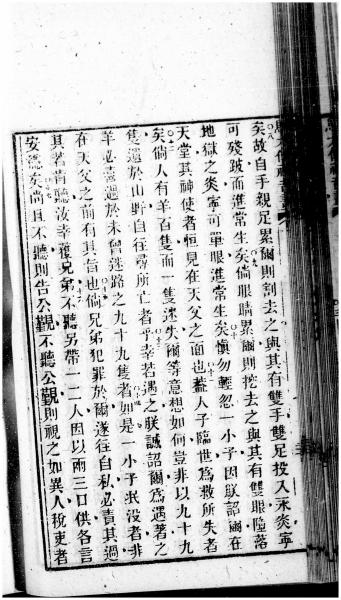 矣故自手親足累爾則割去之與其有雙手雙足投入永炎寧
可殘跛而進常生矣倘眼睛累爾則挖去之與其有雙眼墮落
地獄之炎寧可單眼進常生矣慎勿輕忽一小子因朕詔爾在
天堂其神使者恒見在天父之面也蓋人子臨世為救所失者
矣倘人有羊百隻而一隻迷失爾等意想如何豈非以九十九
隻還於山野自往尋所亡者乎幸若遇之朕誠詔爾為遇著之
羊必喜過於未曾迷路之九十九隻者如是一小子泯沒者非
在天父之前有其旨也倘兄弟犯罪於爾遂往自私必責其過
其若肯聽汝幸獲兄弟不聽另帶一二人因以兩三口供各言
安穩矣尚且不聽則告公觀不聽公觀則視之如異人稅吏者